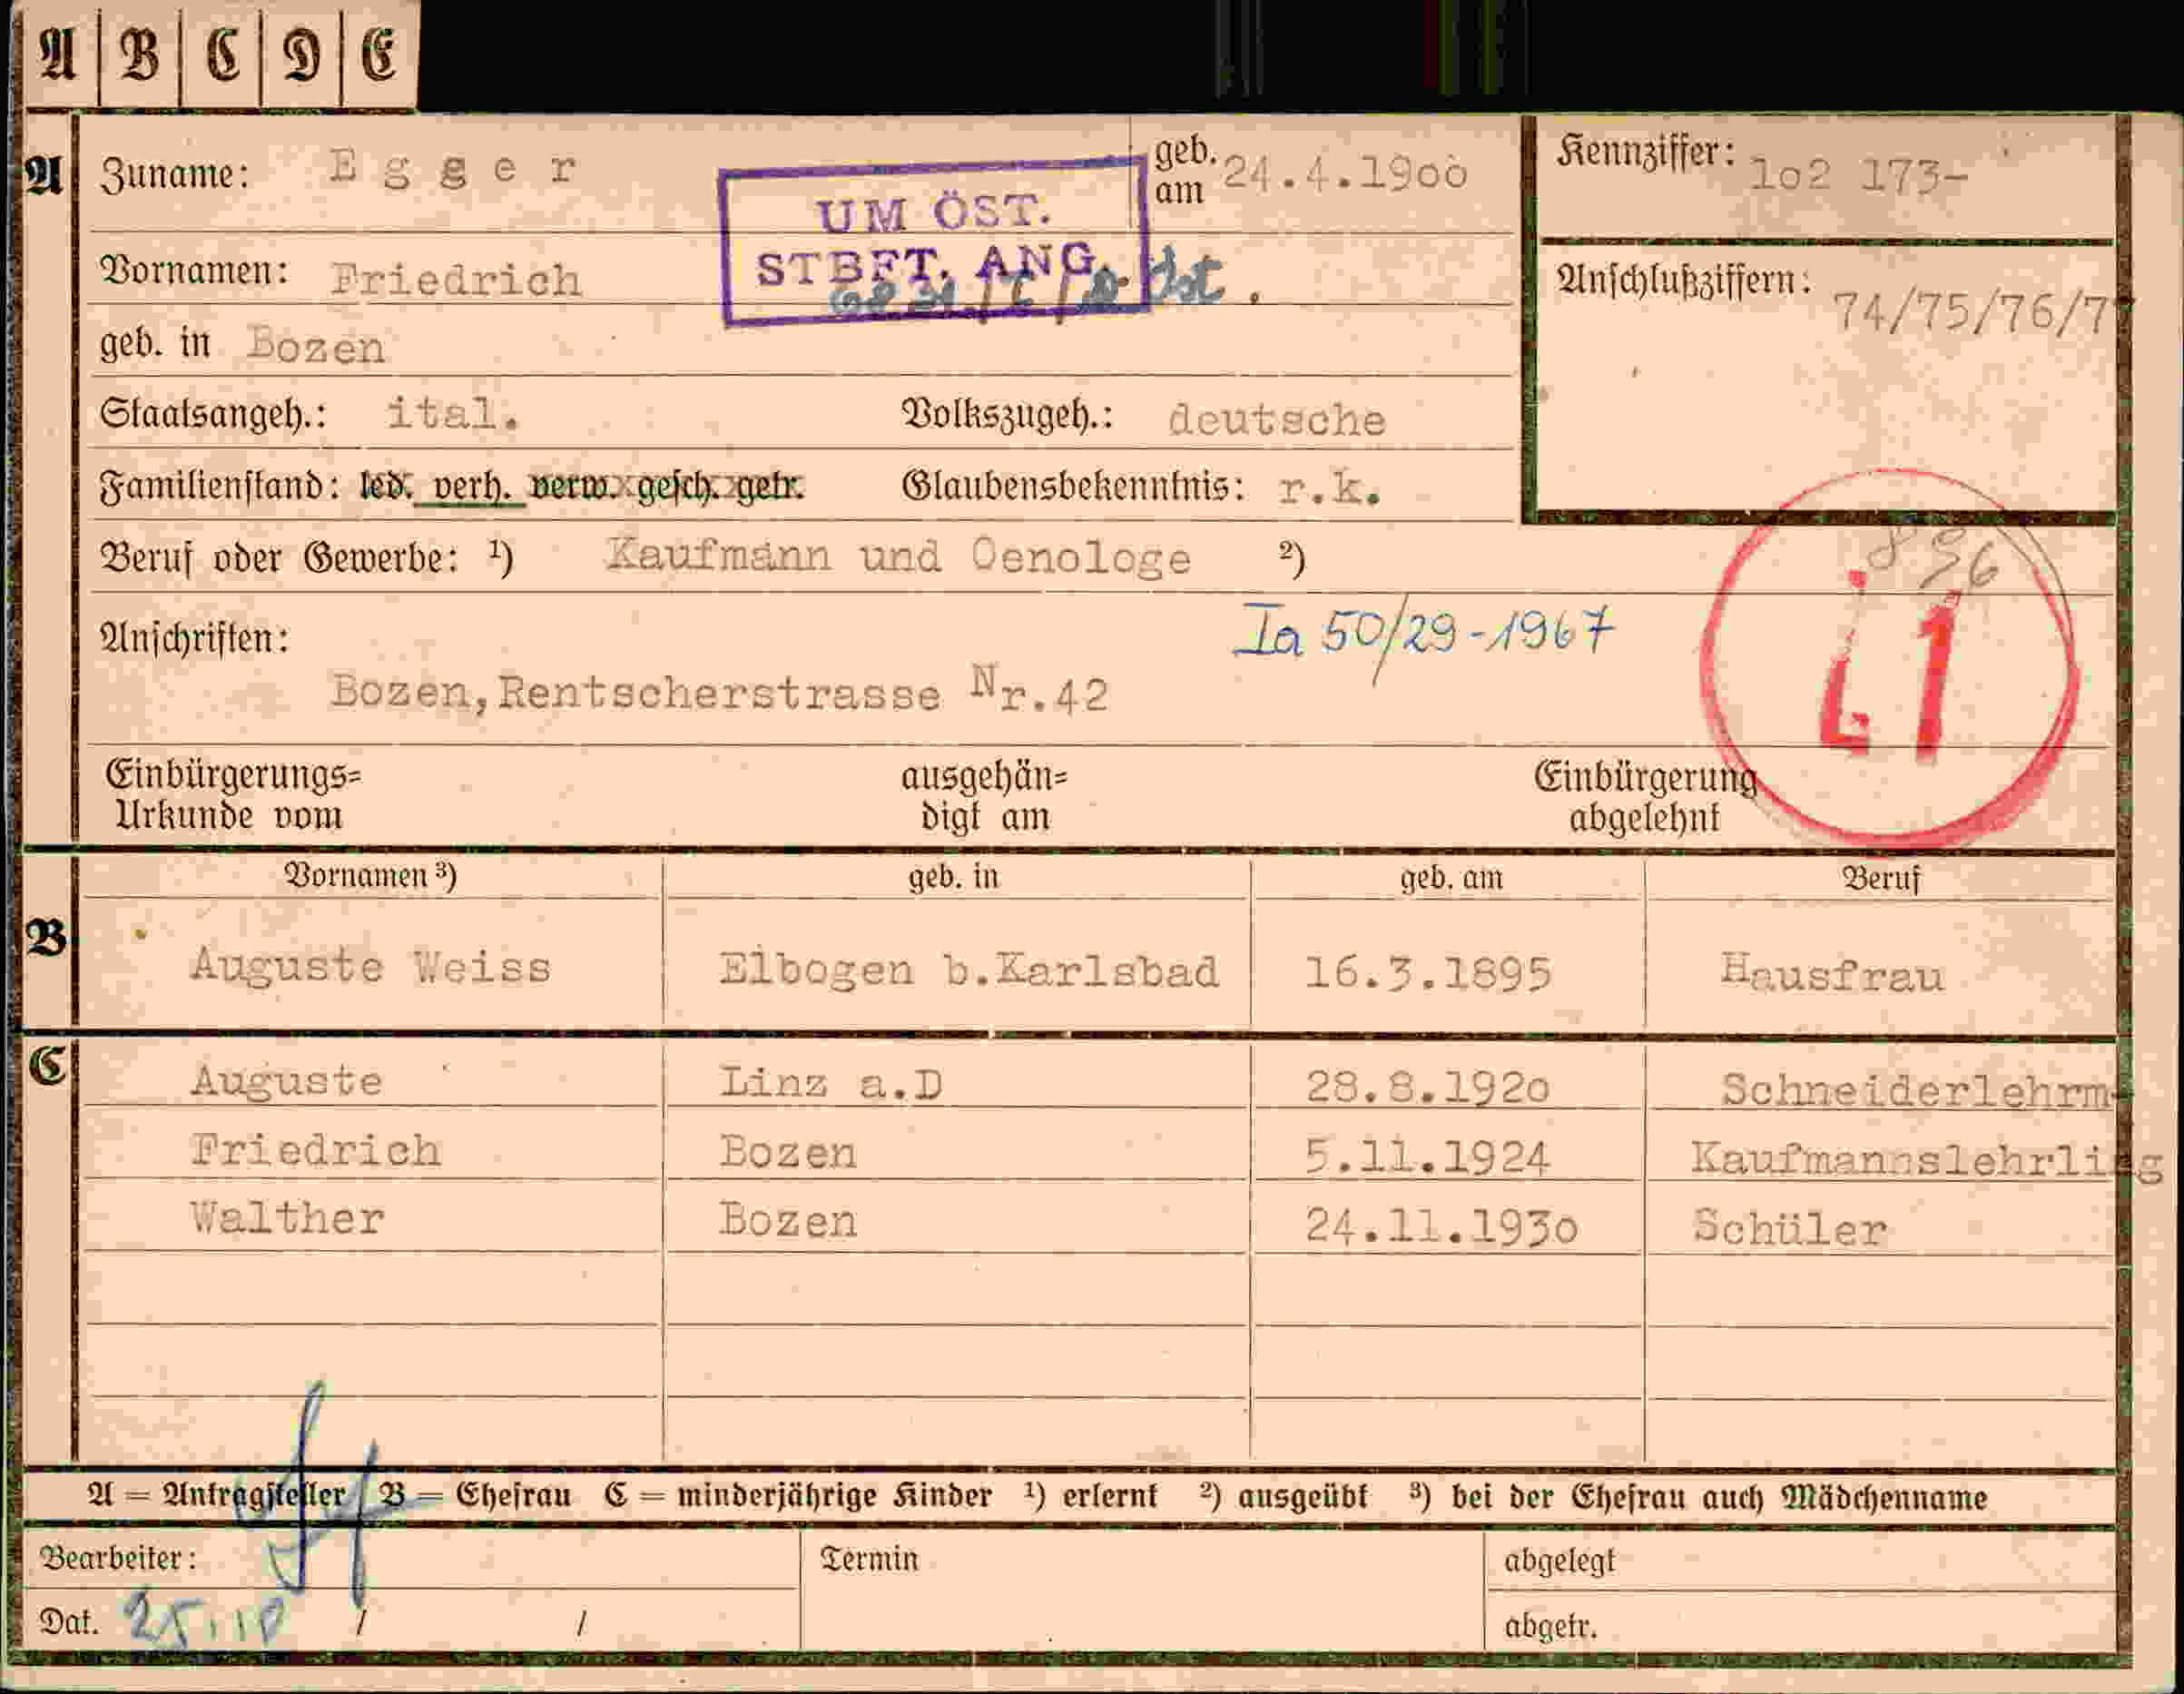 A B C D E
A Zuname: Egger geb. am 24.4.1900 Kennziffer: 1o2 173-
UM ÖST.
STBFT. ANG.
Vornamen: Friedrich Anschlußziffern: 74/75/76/77
geb. in Bozen
Staatsangeh.: ital. Volkszugeh.: deutsche
Familienstand: led. verh. verw. gesch. getr. Glaubensbekenntnis: r.k.
Beruf oder Gewerbe: ¹) Kaufmann und Oenologe ²)
896
Anschriften: Ia 50/29-1967
Bozen,Rentscherstrasse Nr.42
Einbürgerungs= Urkunde vom ausgehän= digt am Einbürgerung abgelehnt
Vornamen ³) geb. in geb. am Beruf
B Auguste Weiss Elbogen b.Karlsbad 16.3.1895 Hausfrau
C Auguste Linz a.D 28.8.192o Schneiderlehrm
Friedrich Bozen 5.11.1924 Kaufmannslehrling
Walther Bozen 24.11.193o Schüler
A = Antragsteller B = Ehefrau C = minderjährige Kinder ¹) erlernt ²) ausgeübt ³) bei der Ehefrau auch Mädchenname
Bearbeiter: Termin abgelegt
Dat. 25.10 / / abgetr.